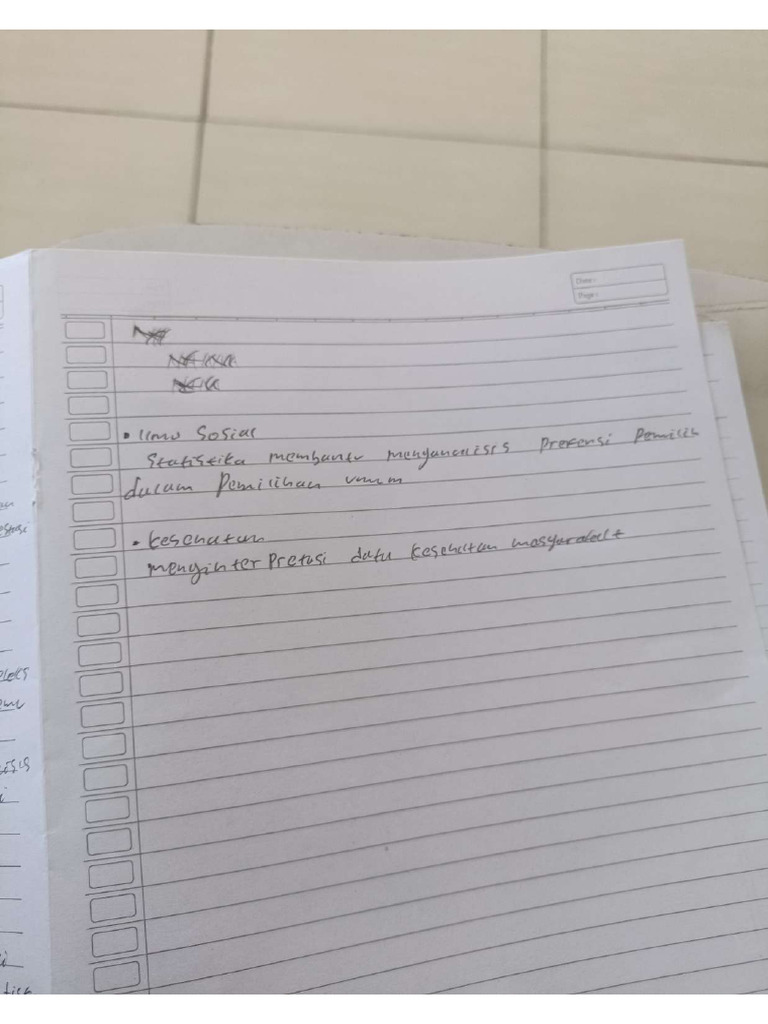 Date :
Page :
• Ilmu Sosial
Statistika membantu menganalisis Prefensi Pemilih
dalam Pemilihan umum
• kesehatan
menginterpretasi data kesehatan masyarakat